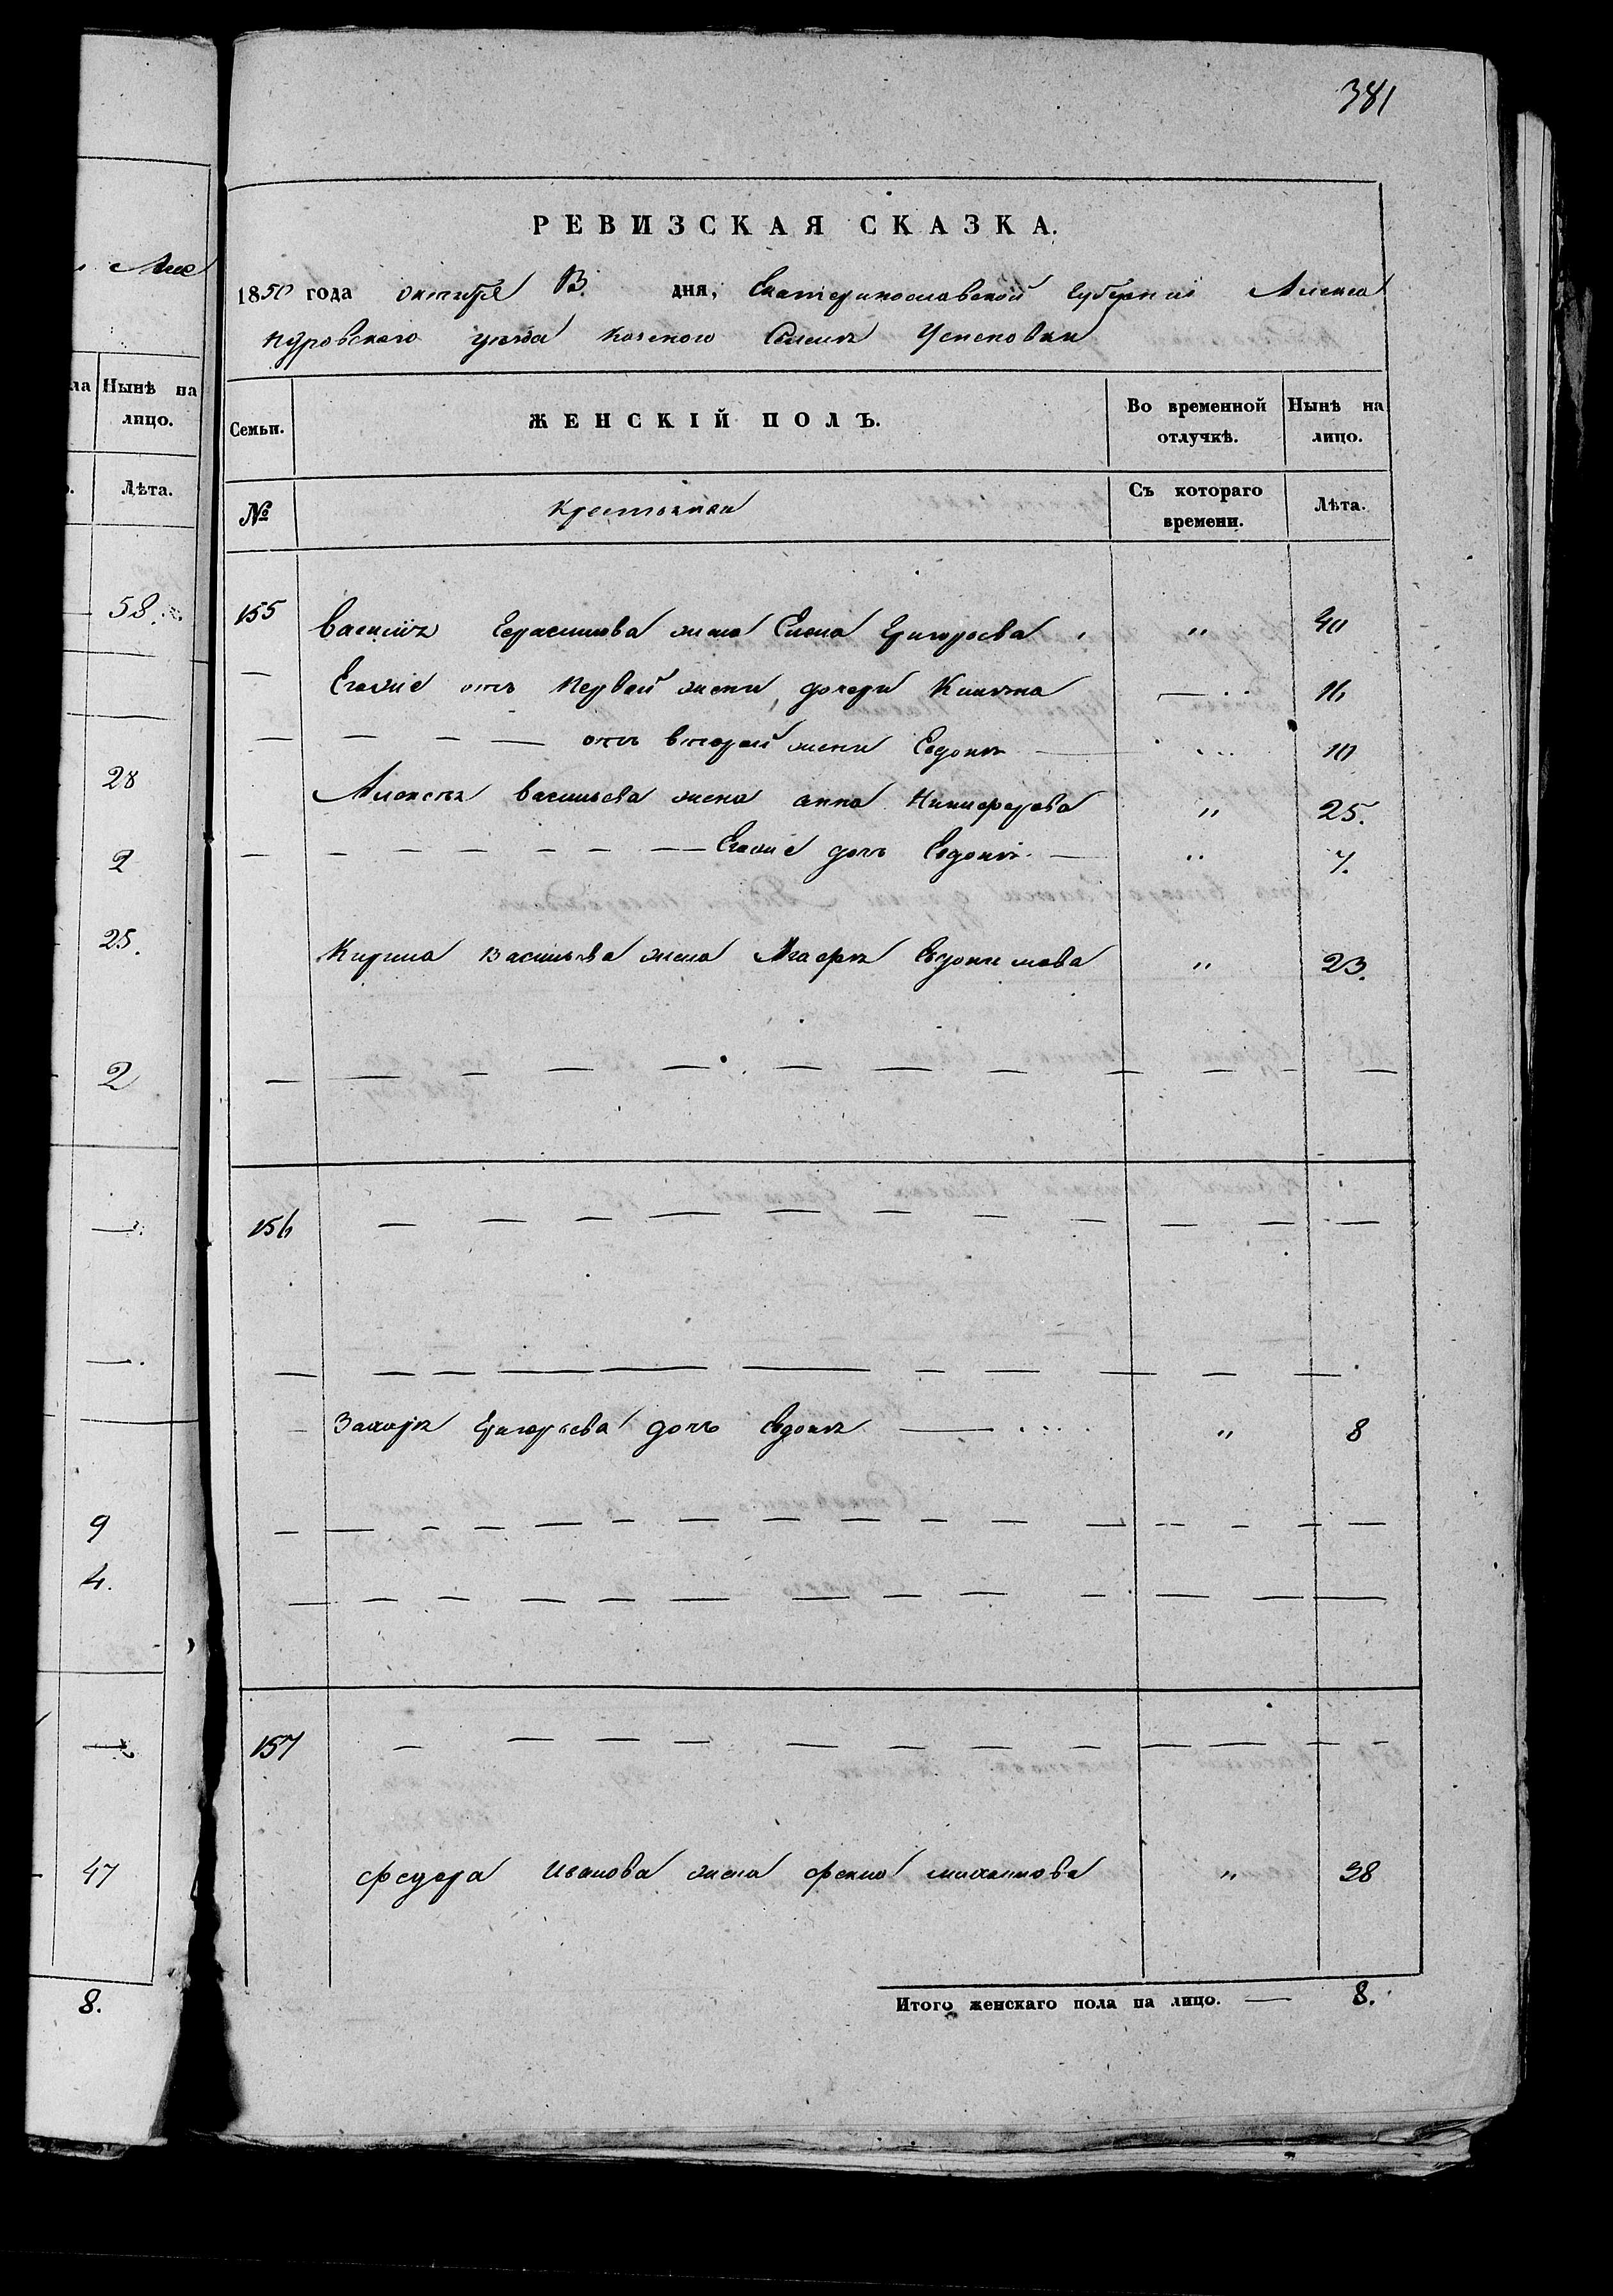 381
РЕВИЗСКАЯ СКАЗКА.
1850 года октября 13 дня, Екатеринославской Губернии Алекса
ндровскаго уезда казеного Селения Успеновки
Семьи. ЖЕНСКІЙ ПОЛЪ. Во временной отлучкѣ. Нынѣ на лицо.
№ Крестьянки Съ котораго времени. Лѣта.
155 Василия Герасимова жена Елена Григорьева " 40
— Егоже отъ первой жены дочери — 16
— — — — отъ второй жены Евдокия — 10
Алексея Васильева жена анна Никифорова " 25.
— — — — — — — Егоже дочь Евдокия — " 7.
Кирила Васильева жена Агафия Евдокимова " 23.
156 — — — — — — — — — — —
— Захара Григорьева дочь Евдокия — " 8
157 — — — — — — — — — — —
Федора Иванова жена Михайлова " 38
Итого женскаго пола на лицо. — 8.
Але
ла Нынѣ на лицо.
Лѣта.
58
28
2
25.
2
9
4.
47
8.